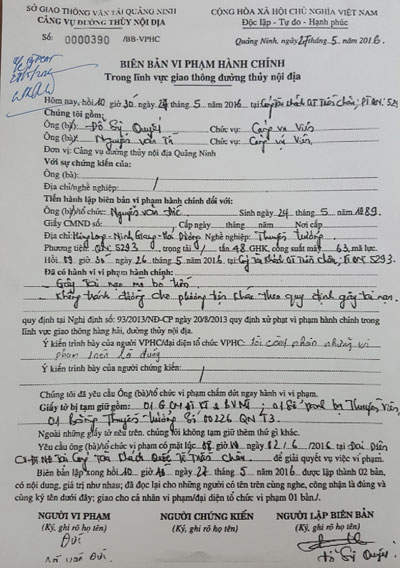 SỞ GIAO THÔNG VẬN TẢI QUẢNG NINH
CẢNG VỤ ĐƯỜNG THỦY NỘI ĐỊA
CỘNG HÒA XÃ HỘI CHỦ NGHĨA VIỆT NAM
Độc lập - Tự do - Hạnh phúc
Số: 0000390 /BB-VPHC
Quảng Ninh, ngày 27 tháng 5 năm 2016
BIÊN BẢN VI PHẠM HÀNH CHÍNH
Trong lĩnh vực giao thông đường thủy nội địa
Hôm nay, hồi 10 giờ 30, ngày 27 tháng 5 năm 2016 tại Cảng tàu khách QT Tuần Châu, PTĐN: 5293
Chúng tôi gồm:
Ông (bà): Đỗ Sỹ Quyết Chức vụ: Cảng vụ Viên
Ông (bà): Nguyễn Văn Tá Chức vụ: Cảng vụ Viên
Đơn vị: Cảng vụ đường thủy nội địa Quảng Ninh
Với sự chứng kiến của:
Ông (bà):
Địa chỉ/nghề nghiệp:
Tiến hành lập biên bản vi phạm hành chính đối với:
Ông (bà)/tổ chức: Nguyễn Văn Sinh ngày 24 tháng 5 năm 1989
Giấy CMND số: Cấp ngày tháng năm Nơi cấp
Địa chỉ: Ninh Giang - Hải Dương Nghề nghiệp: Thuyền trưởng
Phương tiện: QN 5293, trọng tải / tấn 48 GHK, công suất máy 63, mã lực.
Hồi giờ 30 ngày 26 tháng 5 năm 2016 tại: Cảng Tàu Khách QT Tuần Châu, 5293
Đã có hành vi vi phạm hành chính:
- Gây tai nạn mà bỏ trốn
- Không tránh đường cho phương tiện khác theo quy định gây tai nạn.
quy định tại Nghị định số: 93/2013/NĐ-CP ngày 20/8/2013 quy định xử phạt vi phạm hành chính trong lĩnh vực giao thông hàng hải, đường thủy nội địa.
Ý kiến trình bày của người VPHC/đại diện tổ chức VPHC những vi
phạm trên là đúng
Ý kiến trình bày của người chứng kiến:
Chúng tôi đã yêu cầu Ông (bà)/tổ chức vi phạm chấm dứt ngay hành vi vi phạm.
Giấy tờ bị tạm giữ gồm: 01 GCN ATKT & BVMT, 01 Sổ Thuyền Viên,
01 Bằng Thuyền trưởng Số 00226 QN T3.
Ngoài những giấy tờ nêu trên, chúng tôi không tạm giữ thêm thứ gì khác.
Yêu cầu ông (bà)/tổ chức vi phạm có mặt lúc giờ ngày 02/6/2016 tại Đại Diện
Cảng Tàu Khách Quốc Tế Tuần Châu để giải quyết vụ việc vi phạm.
Biên bản lập xong hồi 10 giờ ngày 27 tháng 5 năm 2016 được lập thành 02 bản, có nội dung, giá trị như nhau; đã đọc lại cho những người có tên trên cùng nghe, công nhận là đúng và cùng ký tên dưới đây; giao cho cá nhân vi phạm/đại diện tổ chức vi phạm 01 bản./.
NGƯỜI VI PHẠM
(Ký, ghi rõ họ tên)
NGƯỜI CHỨNG KIẾN
(Ký, ghi rõ họ tên)
NGƯỜI LẬP BIÊN BẢN
(Ký, ghi rõ họ tên)
Đỗ Sỹ Quyết